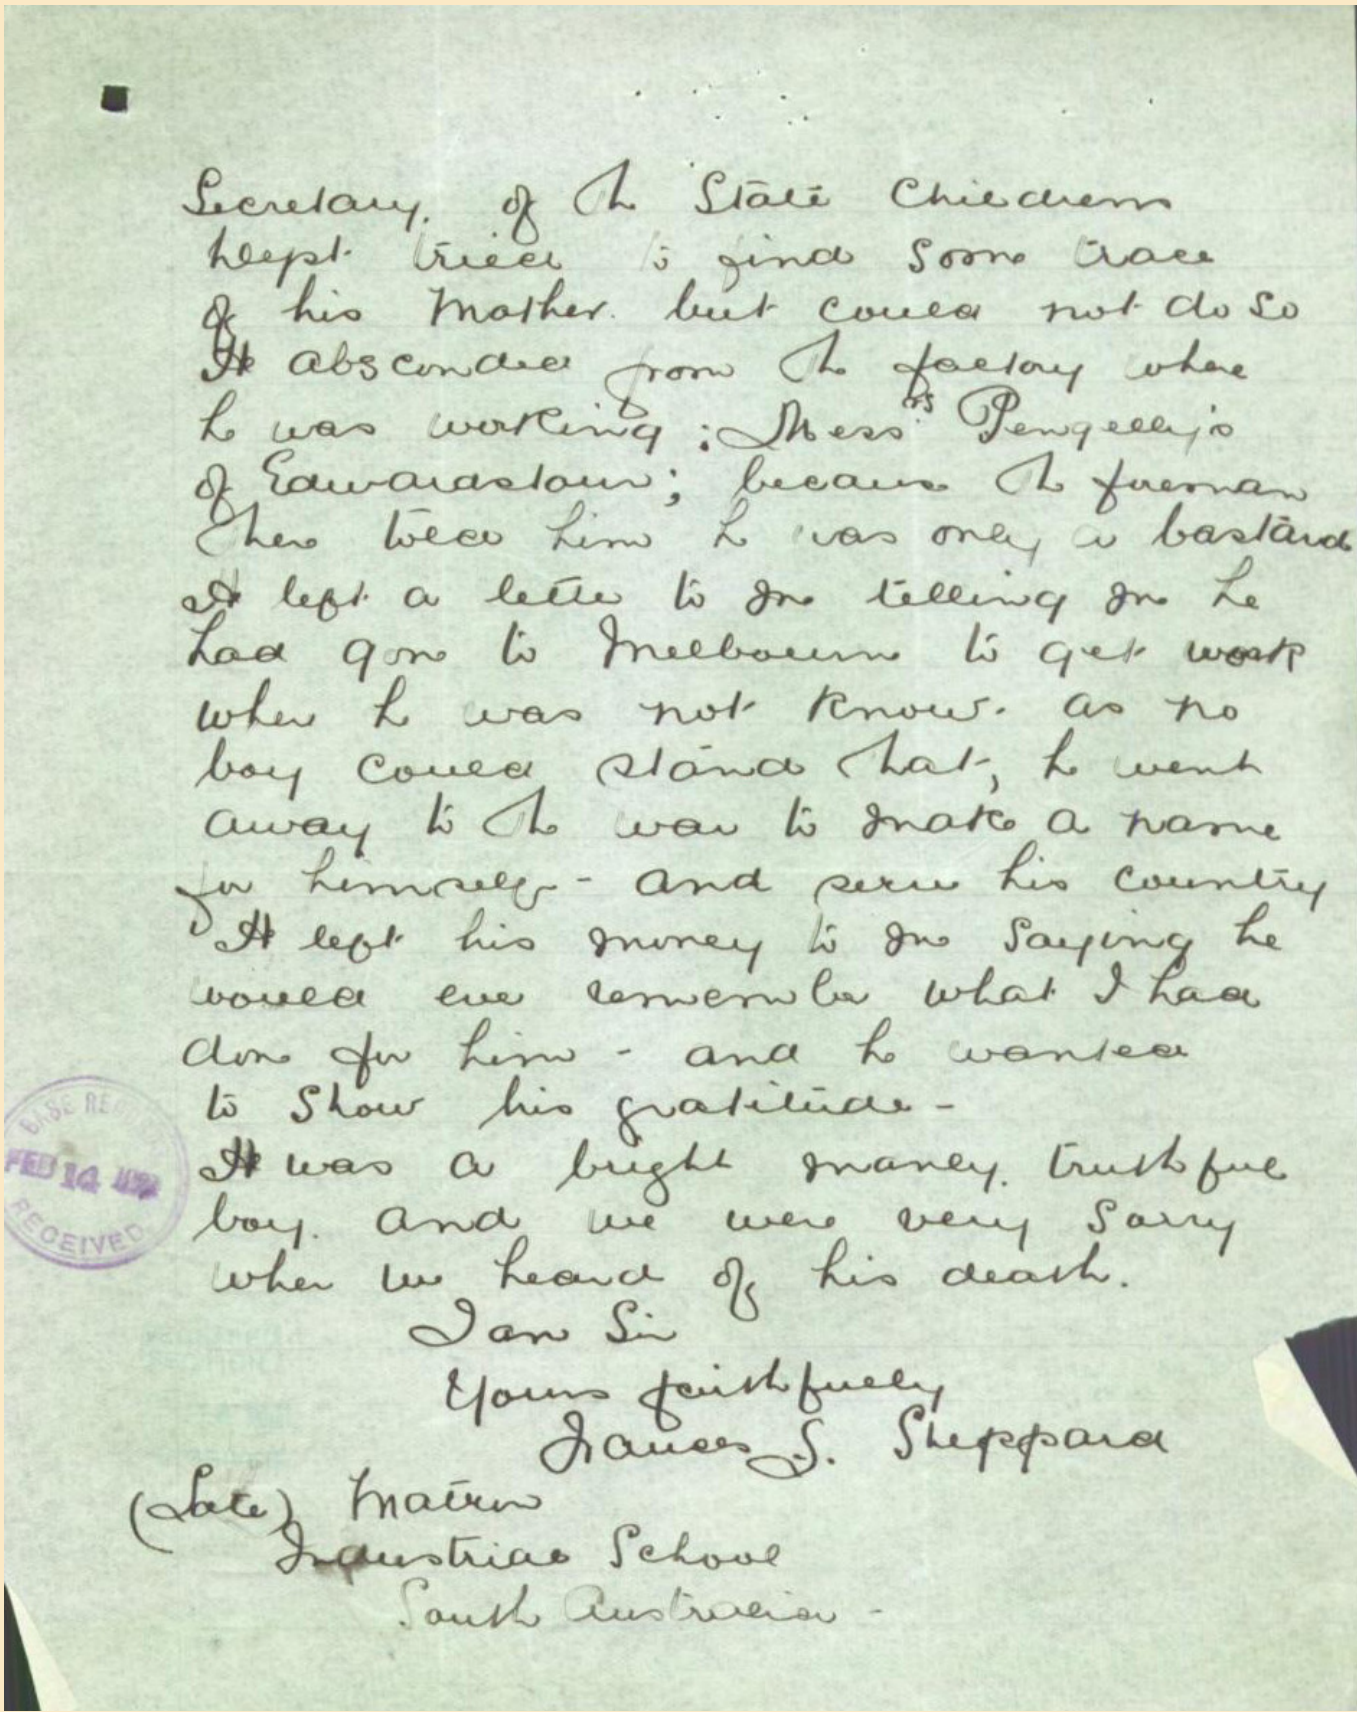 Secretary. of the State Childrens
Dept tried to find some trace
of his Mother. but could not do so
He absconded from the factory where
he was working; Messrs Pengelly's
of Edwardstown; because the foreman
there told him he was only a bastard
He left a letter to me telling me he
had gone to Melbourne to get work
where he was not known. as no
boy could stand that, he went
away to the war to make a name
for himself - and serve his country
He left his money to me saying he
would ever remember what I had
done for him - and he wanted
to show his gratitude -
He was a bright manly. truthful
boy. and we were very sorry
when we heard of his death.
I am Sir
Yours faithfully
Frances S. Sheppard
(Late) Matron
Industrial School
South Australia -
BASE
FEB 14
RECEIVED